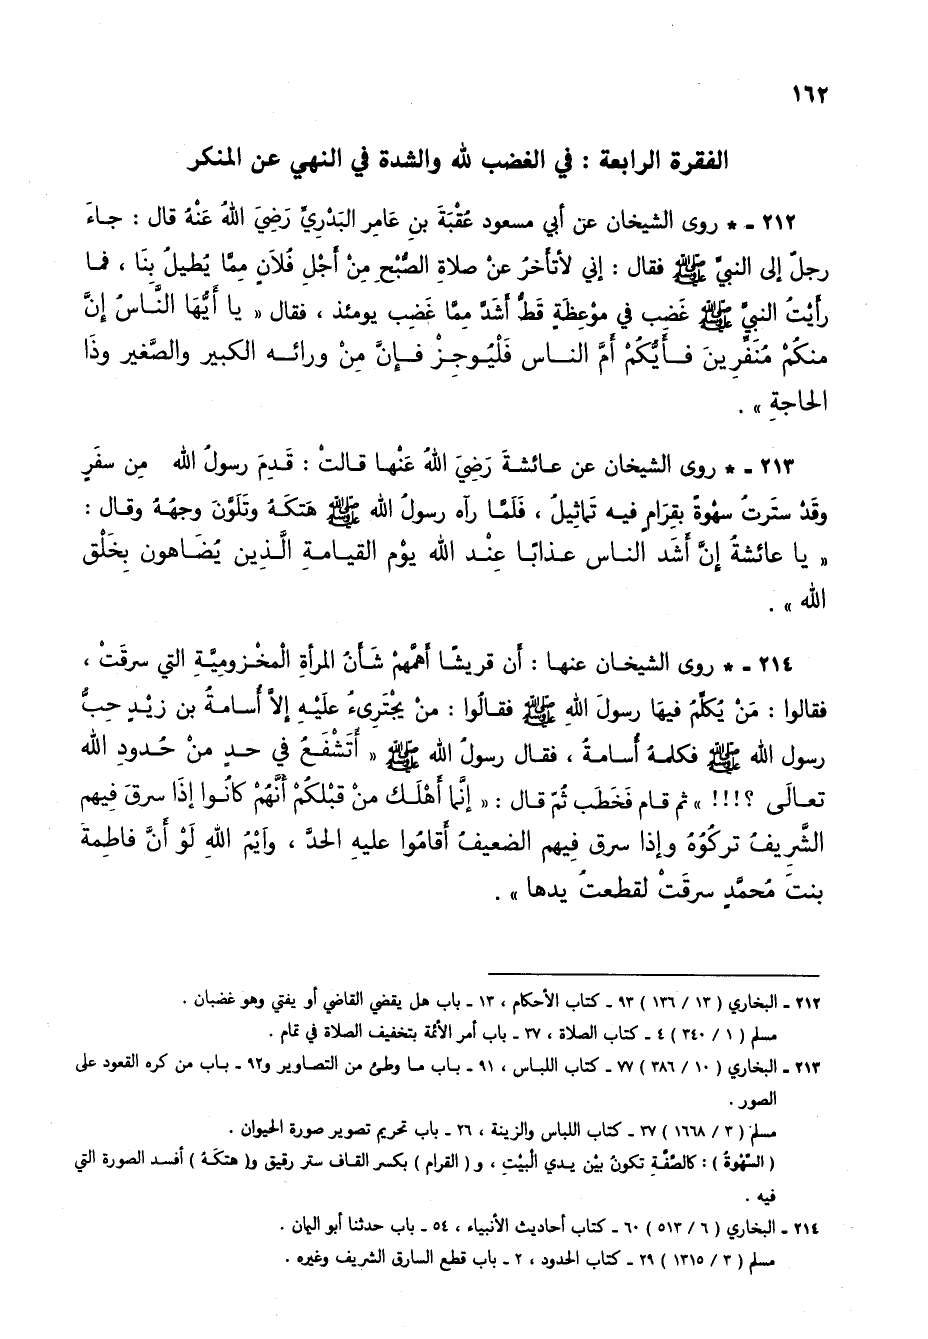 ١٦٢
الفقرة الرابعة : في الغضب لله والشدة في النهي عن المنكر
٢١٢ - * روى الشيخان عن أبي مسعود عُقْبَةَ بنِ عَامِرِ البَدْرِيِّ رَضِيَ اللهُ عَنْهُ قال : جاءَ
رجلٌ إلى النبيِّ ﷺ فقال : إني لأتأخرُ عنْ صلاةِ الصُّبْحِ مِنْ أَجْلِ فُلاَنٍ مِمَّا يُطيلُ بِنَا ، فما
رأيْتُ النبيَّ ﷺ غَضِب في موْعِظَةٍ قطُّ أشَدَّ مِمَّا غَضِب يومئذ ، فقال « يا أيُّهَا النَّاسُ إنَّ
منكُمْ مُنَفِّرِينَ فأيُّكُمْ أمَّ الناس فَلْيُوجِزْ فإنَّ مِنْ ورائه الكبير والصَّغير وذَا
الحاجةِ » .
٢١٣ - * روى الشيخان عن عائشةَ رَضِيَ اللهُ عَنْها قالتْ : قَدِمَ رسولُ الله من سفَرٍ
وقَدْ ستَرتُ سهْوةً بقِرَامٍ فيه تماثيلُ ، فَلَمَّا رآه رسولُ الله ﷺ هتَكَهُ وتَلَوَّنَ وجهُهُ وقال :
« يا عائشةُ إنَّ أشَد الناس عذابًا عِنْد الله يوْم القيامةِ الَّذِين يُضَاهون بِخَلْق
الله » .
٢١٤ - * روى الشيخان عنها : أن قريشًا أهَمَّهمْ شَأنُ المرأةِ الْمخْزوميَّةِ التي سرقَتْ ،
فقالوا : مَنْ يُكلِّمُ فيهَا رسولَ اللهِ ﷺ فقالُوا : منْ يجْترِىءُ علَيْهِ إلاَّ أُسامةُ بن زيْدٍ حِبُّ
رسول الله ﷺ فكلمهُ أُسامةُ ، فقال رسولُ الله ﷺ « أتَشْفَعُ في حدٍ منْ حُدودِ الله
تعالَى ؟!!! » ثم قام فَخَطَب ثُمّ قال : « إنَّمَا أهْلَك منْ قبْلكُمْ أنَّهُمْ كانُوا إذَا سرقَ فيهم
الشَّريفُ تركُوُهُ وإذا سرق فيهم الضعيفُ أقامُوا عليهِ الحدَّ ، وآيْمُ اللهِ لَوْ أنَّ فاطمةَ
بنتَ مُحمَّدٍ سرقَتْ لقطعتُ يدها » .
٢١٢ - البخاري ( ١٣ / ١٣٦ ) ٩٣ - كتاب الأحكام ، ١٣ - باب هل يقضي القاضي أو يفتي وهو غضبان .
مسلم ( ١ / ٣٤٠ ) ٤ - كتاب الصلاة ، ٣٧ - باب أمر الأئمة بتخفيف الصلاة في تمام .
٢١٣ - البخاري ( ١٠ / ٣٨٦ ) ٧٧ - كتاب اللباس ، ٩١ - باب ما وطئ من التصاوير و٩٢ - باب من كره القعود على
الصور .
مسلم ( ٣ / ١٦٦٨ ) ٣٧ - كتاب اللباس والزينة ، ٢٦ - باب تحريم تصوير صورة الحيوان .
( السَّهْوةُ ) : كالصّفَّةِ تكونُ بيْن يدي الْبيْتِ ، و ( القرام ) بكسر القاف ستر رقيق و( هتكَهُ ) أفسد الصورة التي
فيه .
٢١٤ - البخاري ( ٦ / ٥١٣ ) ٦٠ - كتاب أحاديث الأنبياء ، ٥٤ - باب حدثنا أبو اليمان .
مسلم ( ٣ / ١٣١٥ ) ٢٩ - كتاب الحدود ، ٢ - باب قطع السارق الشريف وغيره .